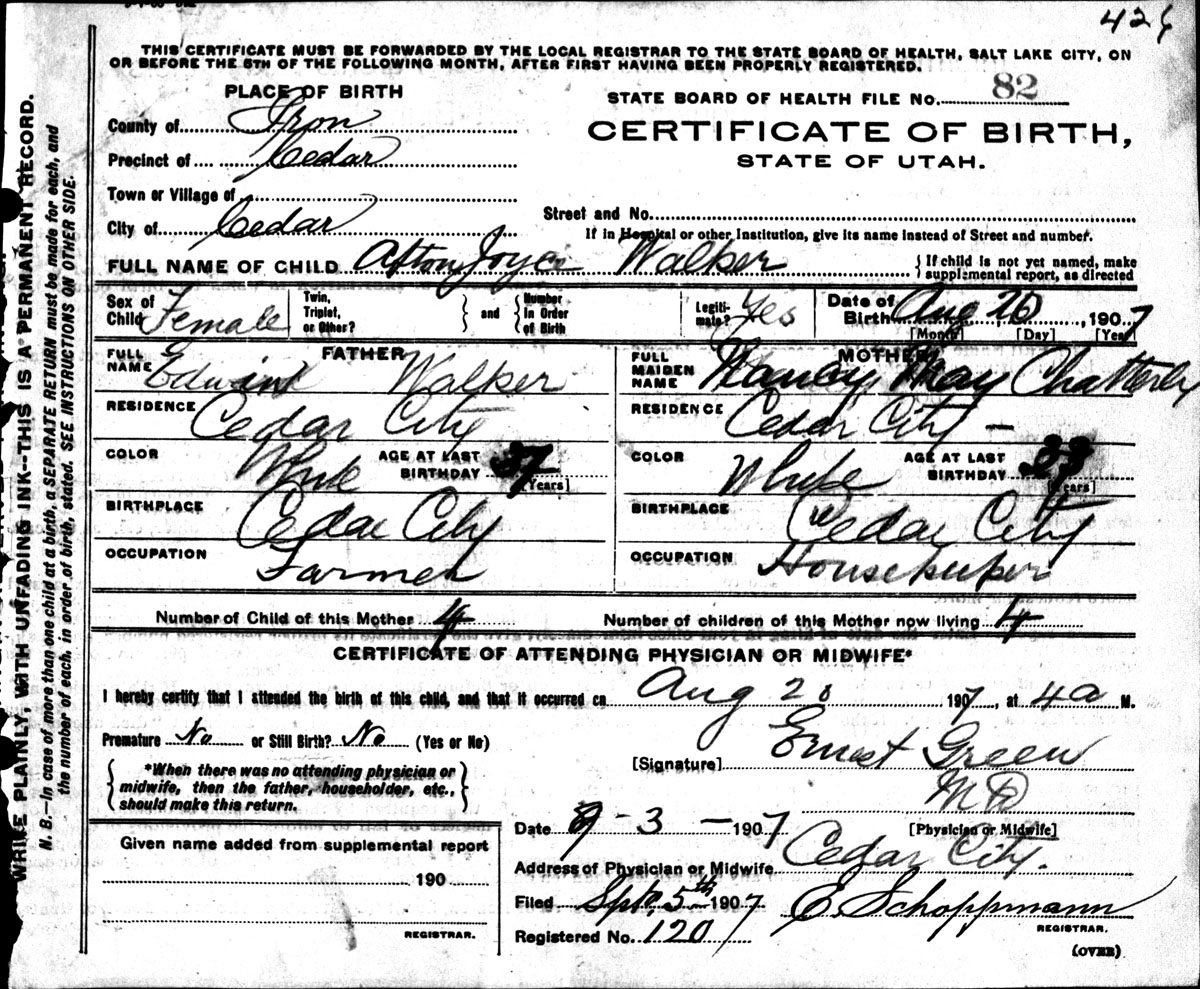 426
THIS CERTIFICATE MUST BE FORWARDED BY THE LOCAL REGISTRAR TO THE STATE BOARD OF HEALTH, SALT LAKE CITY, ON
OR BEFORE THE 5TH OF THE FOLLOWING MONTH, AFTER FIRST HAVING BEEN PROPERLY REGISTERED.
PLACE OF BIRTH
STATE BOARD OF HEALTH FILE NO. 82
County of Iron
CERTIFICATE OF BIRTH,
Precinct of Cedar
STATE OF UTAH.
Town or Village of
City of Cedar
Street and No.
If in Hospital or other Institution, give its name instead of Street and number.
FULL NAME OF CHILD Afton Joyce Walker
{If child is not yet named, make
supplemental report, as directed
Sex of Child Female
Twin, Triplet, or Other?
} and {
Number In Order of Birth
Legiti-mate? Yes
Date of Birth Aug 20, 1907
[Month] [Day] [Year]
FATHER
FULL NAME Edwin Walker
MOTHER
FULL MAIDEN NAME Nancy May Chatterly
RESIDENCE Cedar City
RESIDENCE Cedar City –
COLOR White AGE AT LAST BIRTHDAY 37 [Years]
COLOR White AGE AT LAST BIRTHDAY 33 [Years]
BIRTHPLACE Cedar City
BIRTHPLACE Cedar City
OCCUPATION Farmer
OCCUPATION Housekeeper
Number of Child of this Mother 4
Number of children of this Mother now living 4
CERTIFICATE OF ATTENDING PHYSICIAN OR MIDWIFE*
I hereby certify that I attended the birth of this child, and that it occurred on Aug 20 1907, at 4 a M.
Premature No or Still Birth? No (Yes or No)
[Signature] Ernest Green
M D
[Physician or Midwife]
{*When there was no attending physician or
midwife, then the father, householder, etc.,
should make this return.}
Date 9 - 3 - 1907
Address of Physician or Midwife Cedar City.
Given name added from supplemental report
190
REGISTRAR.
Filed Sept. 5th 1907 E. Schoppmann
REGISTRAR.
Registered No. 120
(OVER)
WRITE PLAINLY, WITH UNFADING INK--THIS IS A PERMANENT RECORD.
N. B.--In case of more than one child at a birth, a SEPARATE RETURN must be made for each, and
the number of each, in order of birth, stated. SEE INSTRUCTIONS ON OTHER SIDE.